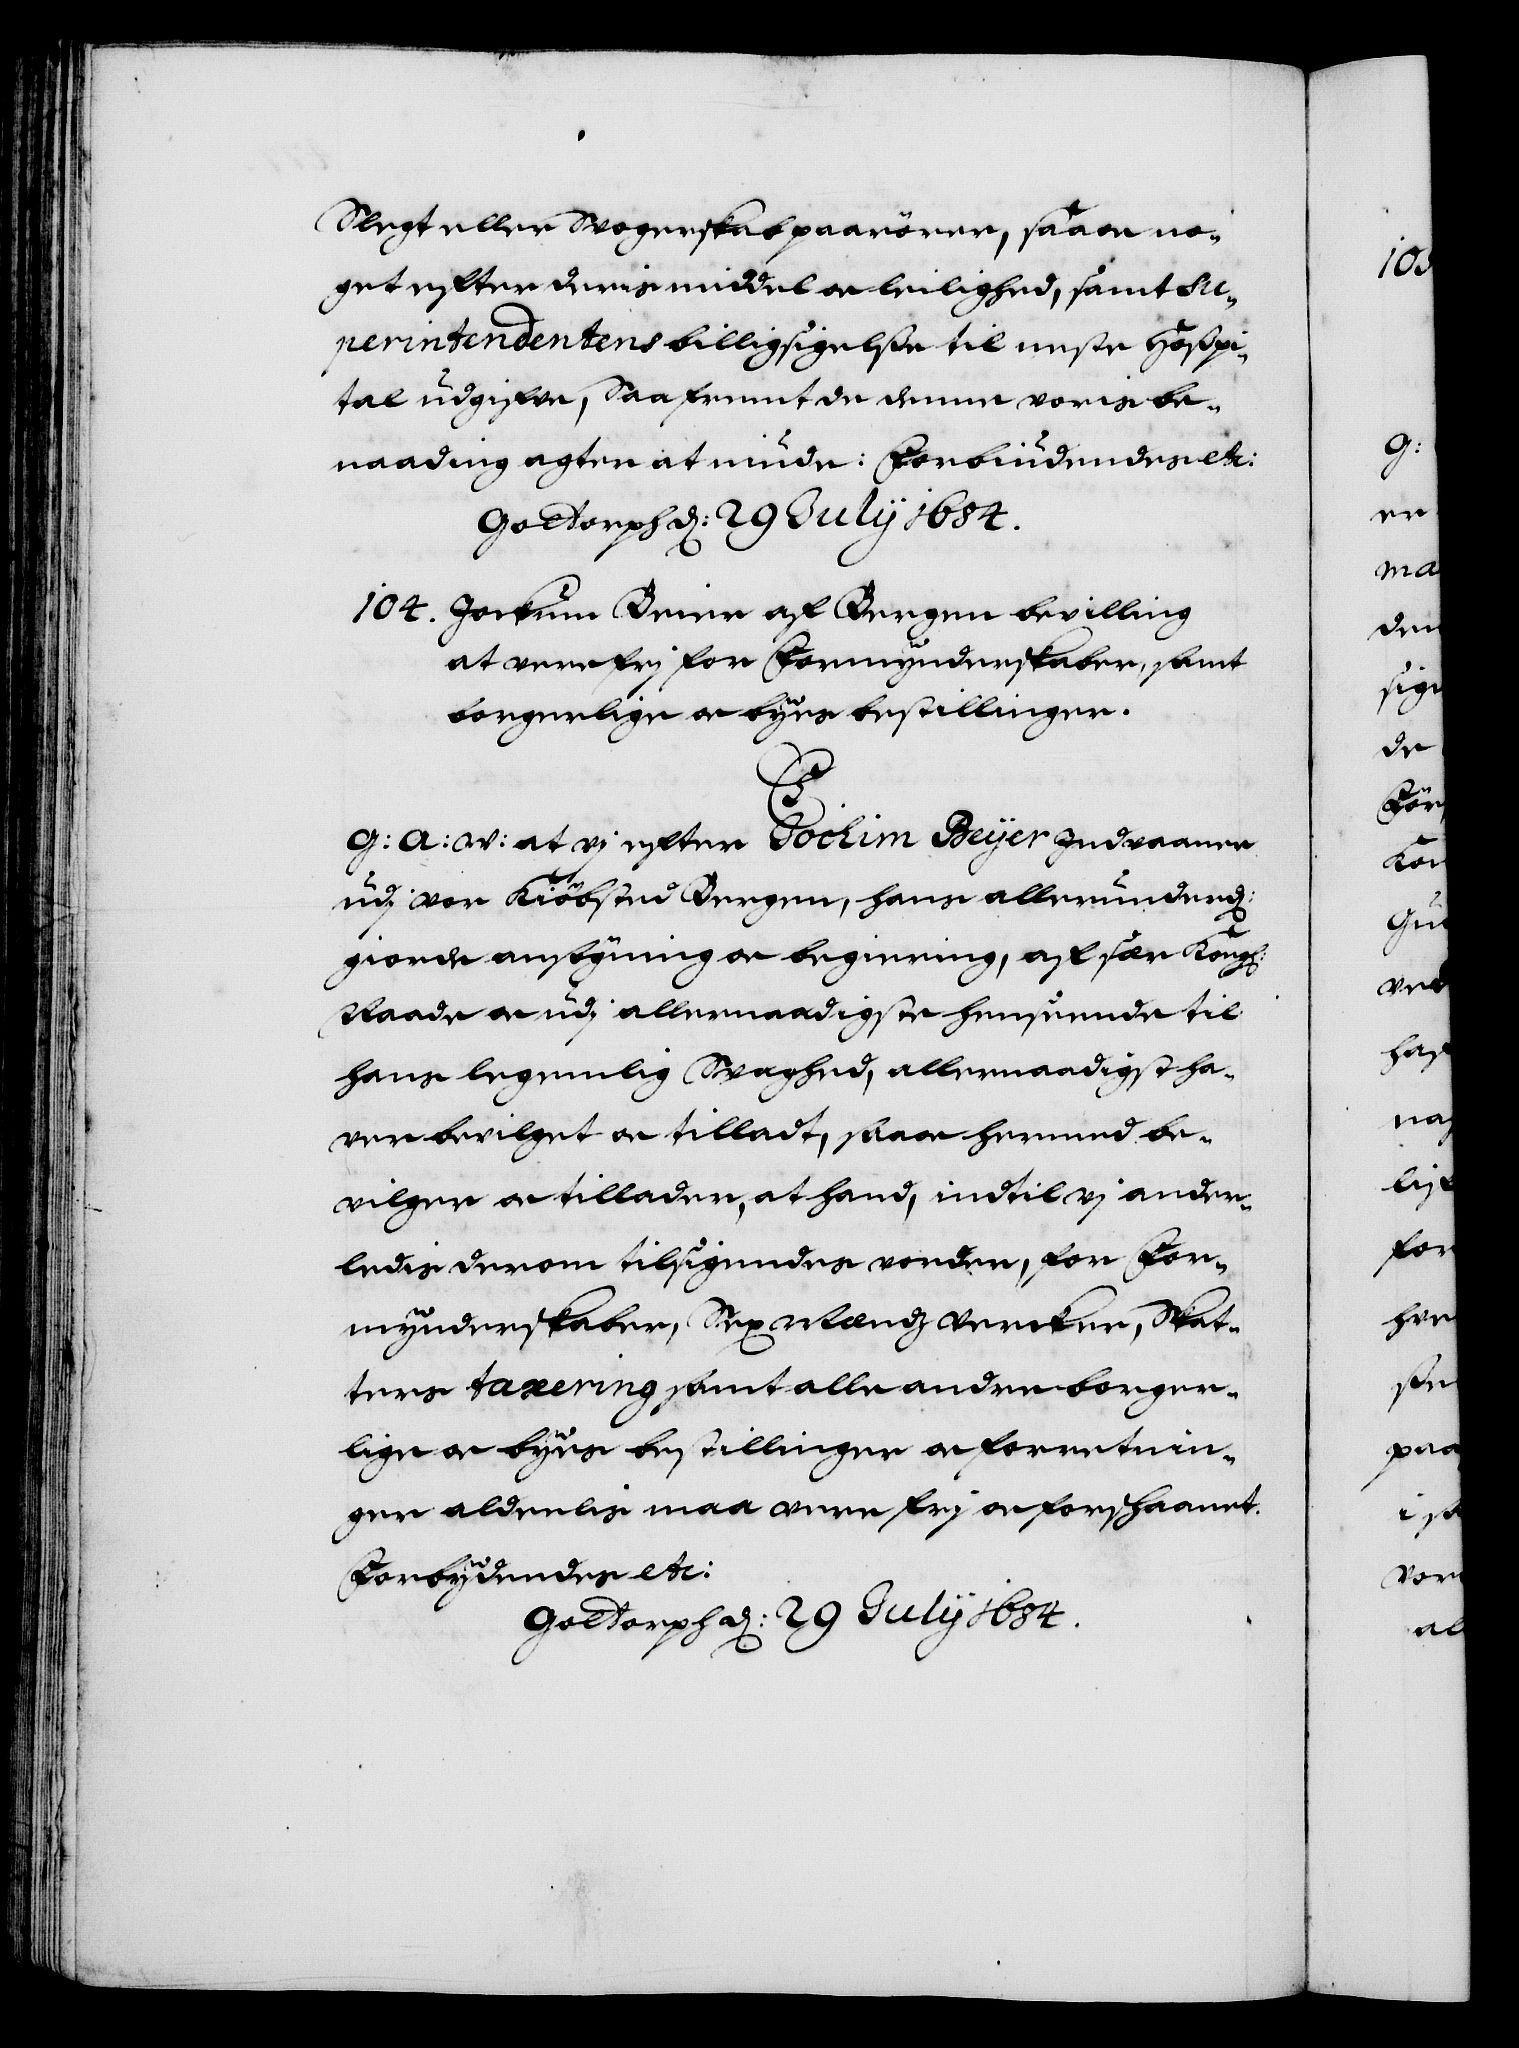 Slegt eller Svogerskab paarörer, saa oc no-
get efter deris middel oc leilighed, samt Su-
perintendentens billigsigelße til neste Hospi-
tal udgifve, Saafremt de denne voris be-
naading agter at niude: Forbiudendes etc:
Gottorph d: 29 July 1684.
104. Jockum Beier af Bergen bevilling
at vere frj for Formynderskaber, samt
borgerlige oc byes bestillinger.
C5
G: A: V: at vj efter Jochim Beyer Indvaaner
udj vor Kiöbsted Bergen, hans allerunderd:
giorde ansögning oc begiering, af sær Kongl:
Naade oc udj allernaadigste henseende til
hans legemlig Svaghed, allernaadigst ha-
ver bevilget oc tilladt, saa oc hermed be-
vilger oc tillader, at hand, indtil vj ander-
ledis derom tilsigendes vorder, for For-
mynderskaber, Sex Mænds Vercker, Skat-
ters taxering samt alle andre borger-
lige oc byes bestillinger oc forretnin-
ger aldeelis maa vere frj oc forskaanet.
Forbydendes etc:
Gottorph d: 29 July 1684.
105
G:
er
ma
den
sige
de
För
Kon
Gu
ved
haf
naa
lif
for
hve
ste
paa
i st
vor
al